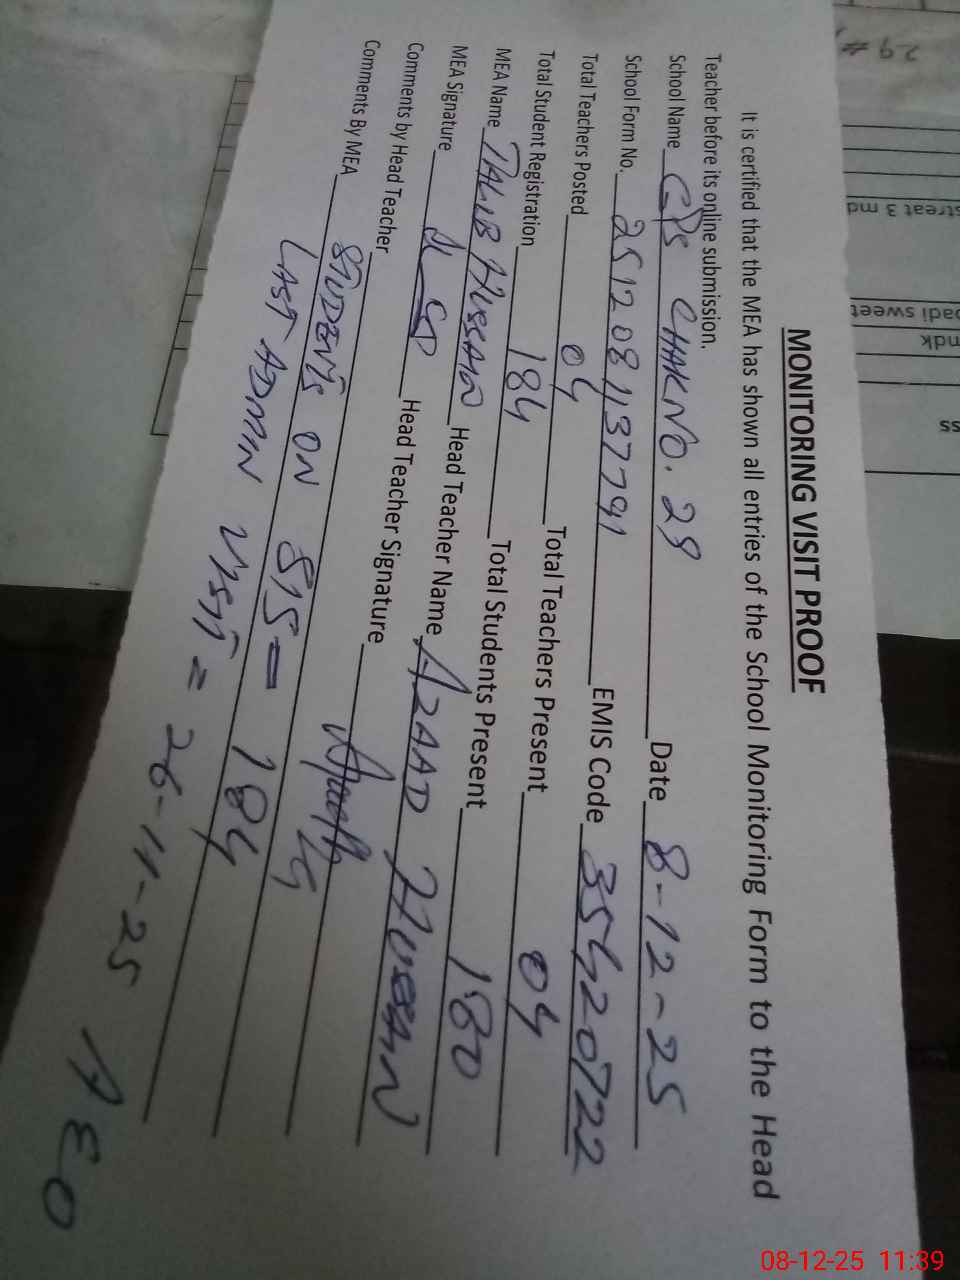 MONITORING VISIT PROOF
It is certified that the MEA has shown all entries of the School Monitoring Form to the Head
Teacher before its online submission.
School Name GPS CHAK NO. 29 Date 8-12-25
School Form No. 251208137791 EMIS Code 35420722
Total Teachers Posted 04 Total Teachers Present 04
Total Student Registration 184 Total Students Present 180
MEA Name TALIB HUSSAIN Head Teacher Name AZAAD HUSSAIN
MEA Signature Head Teacher Signature
Comments by Head Teacher
Comments By MEA STUDENTS ON SIS = 184
LAST ADMIN VISIT = 26-11-25 AEO
29 #
streat 3 md
padi sweet
mdk
ss
08-12-25 11:39